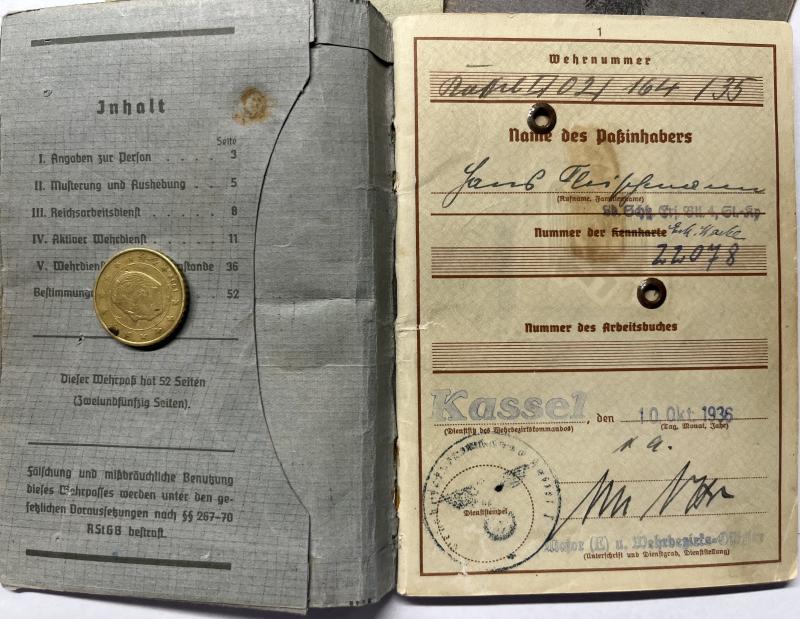 Inhalt
Seite
I. Angaben zur Person . . . . 3
II. Musterung und Aushebung . . 5
III. Reichsarbeitsdienst . . . . 8
IV. Aktiver Wehrdienst . . . . 11
V. 36
52
Dieser Wehrpaß hat 52 Seiten
(Zweiundfünfzig Seiten).
Fälschung und mißbräuchliche Benutzung
dieses Wehrpasses werden unter den ge-
setzlichen Voraussetzungen nach §§ 267-70
RStGB bestraft.
1
Wehrnummer
Kassel 02/ 164 /35
Name des Paßinhabers
Hans Fleischmann
(Rufname, Familienname)
Nummer der Kennkarte
22078
Nummer des Arbeitsbuches
Kassel, den 10. Okt. 1936
(Dienstsitz des Wehrbezirkskommandos) (Tag, Monat, Jahr)
Dienststempel
Major (E) u. Wehrbezirks-Offizier
(Unterschrift und Dienstgrad, Dienststellung)